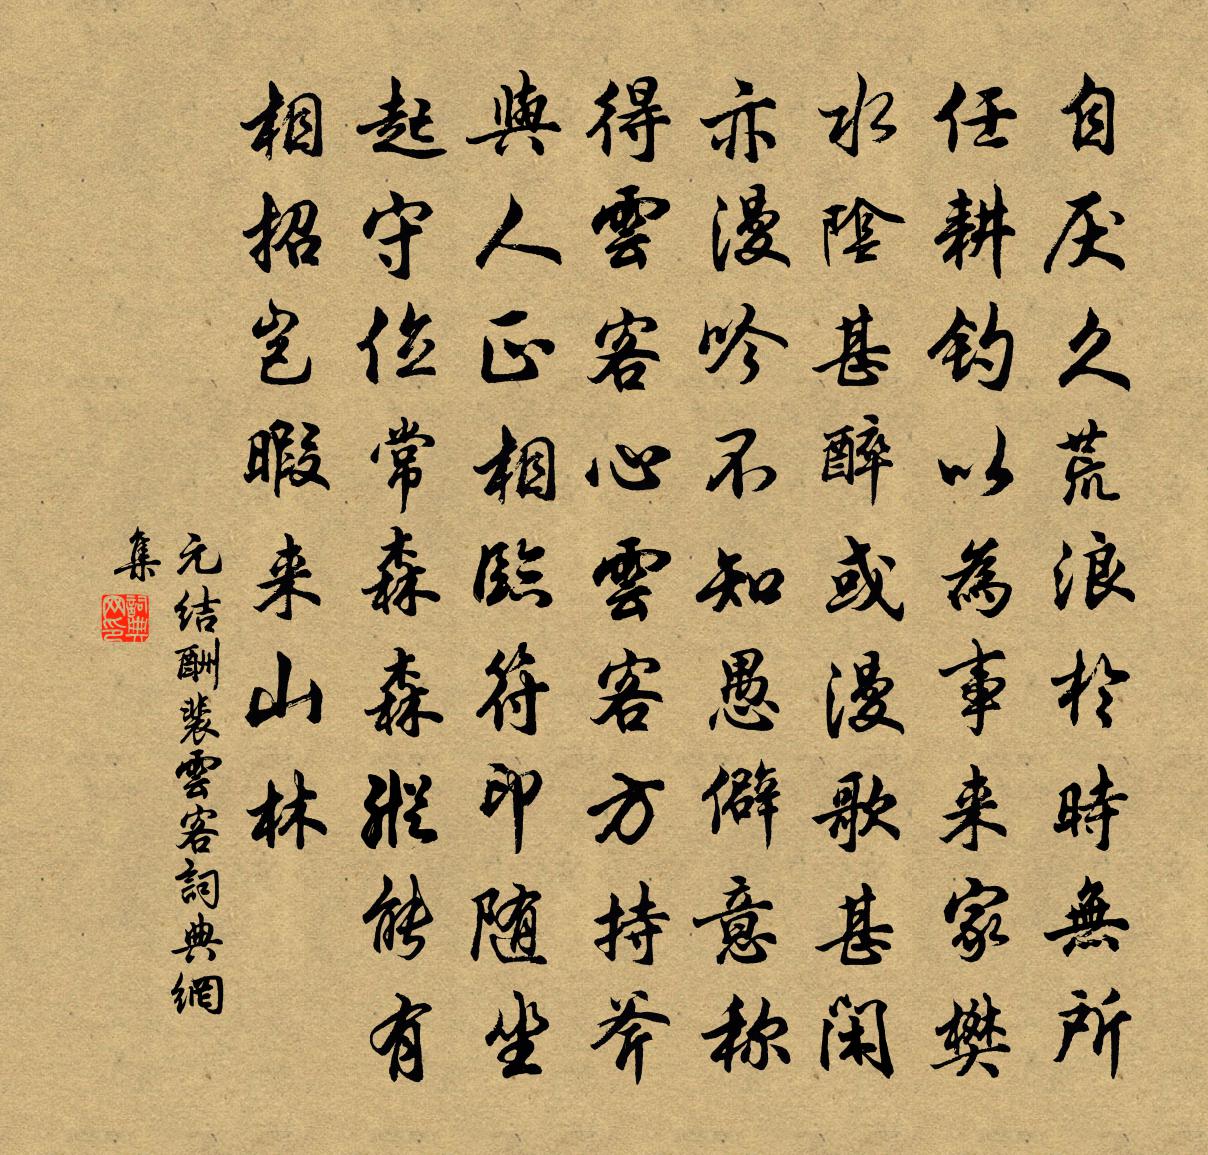 自厌久荒浪於時無所
任耕钓以為事来家樊
水陰甚醉或漫歌甚閑
亦漫吟不知愚僻意称
得雲客心雲客方持斧
與人正相臨符印随坐
起守位常森森縱能有
相招岂暇来山林
元结酬裴雲客詞典網
集
詞典网印